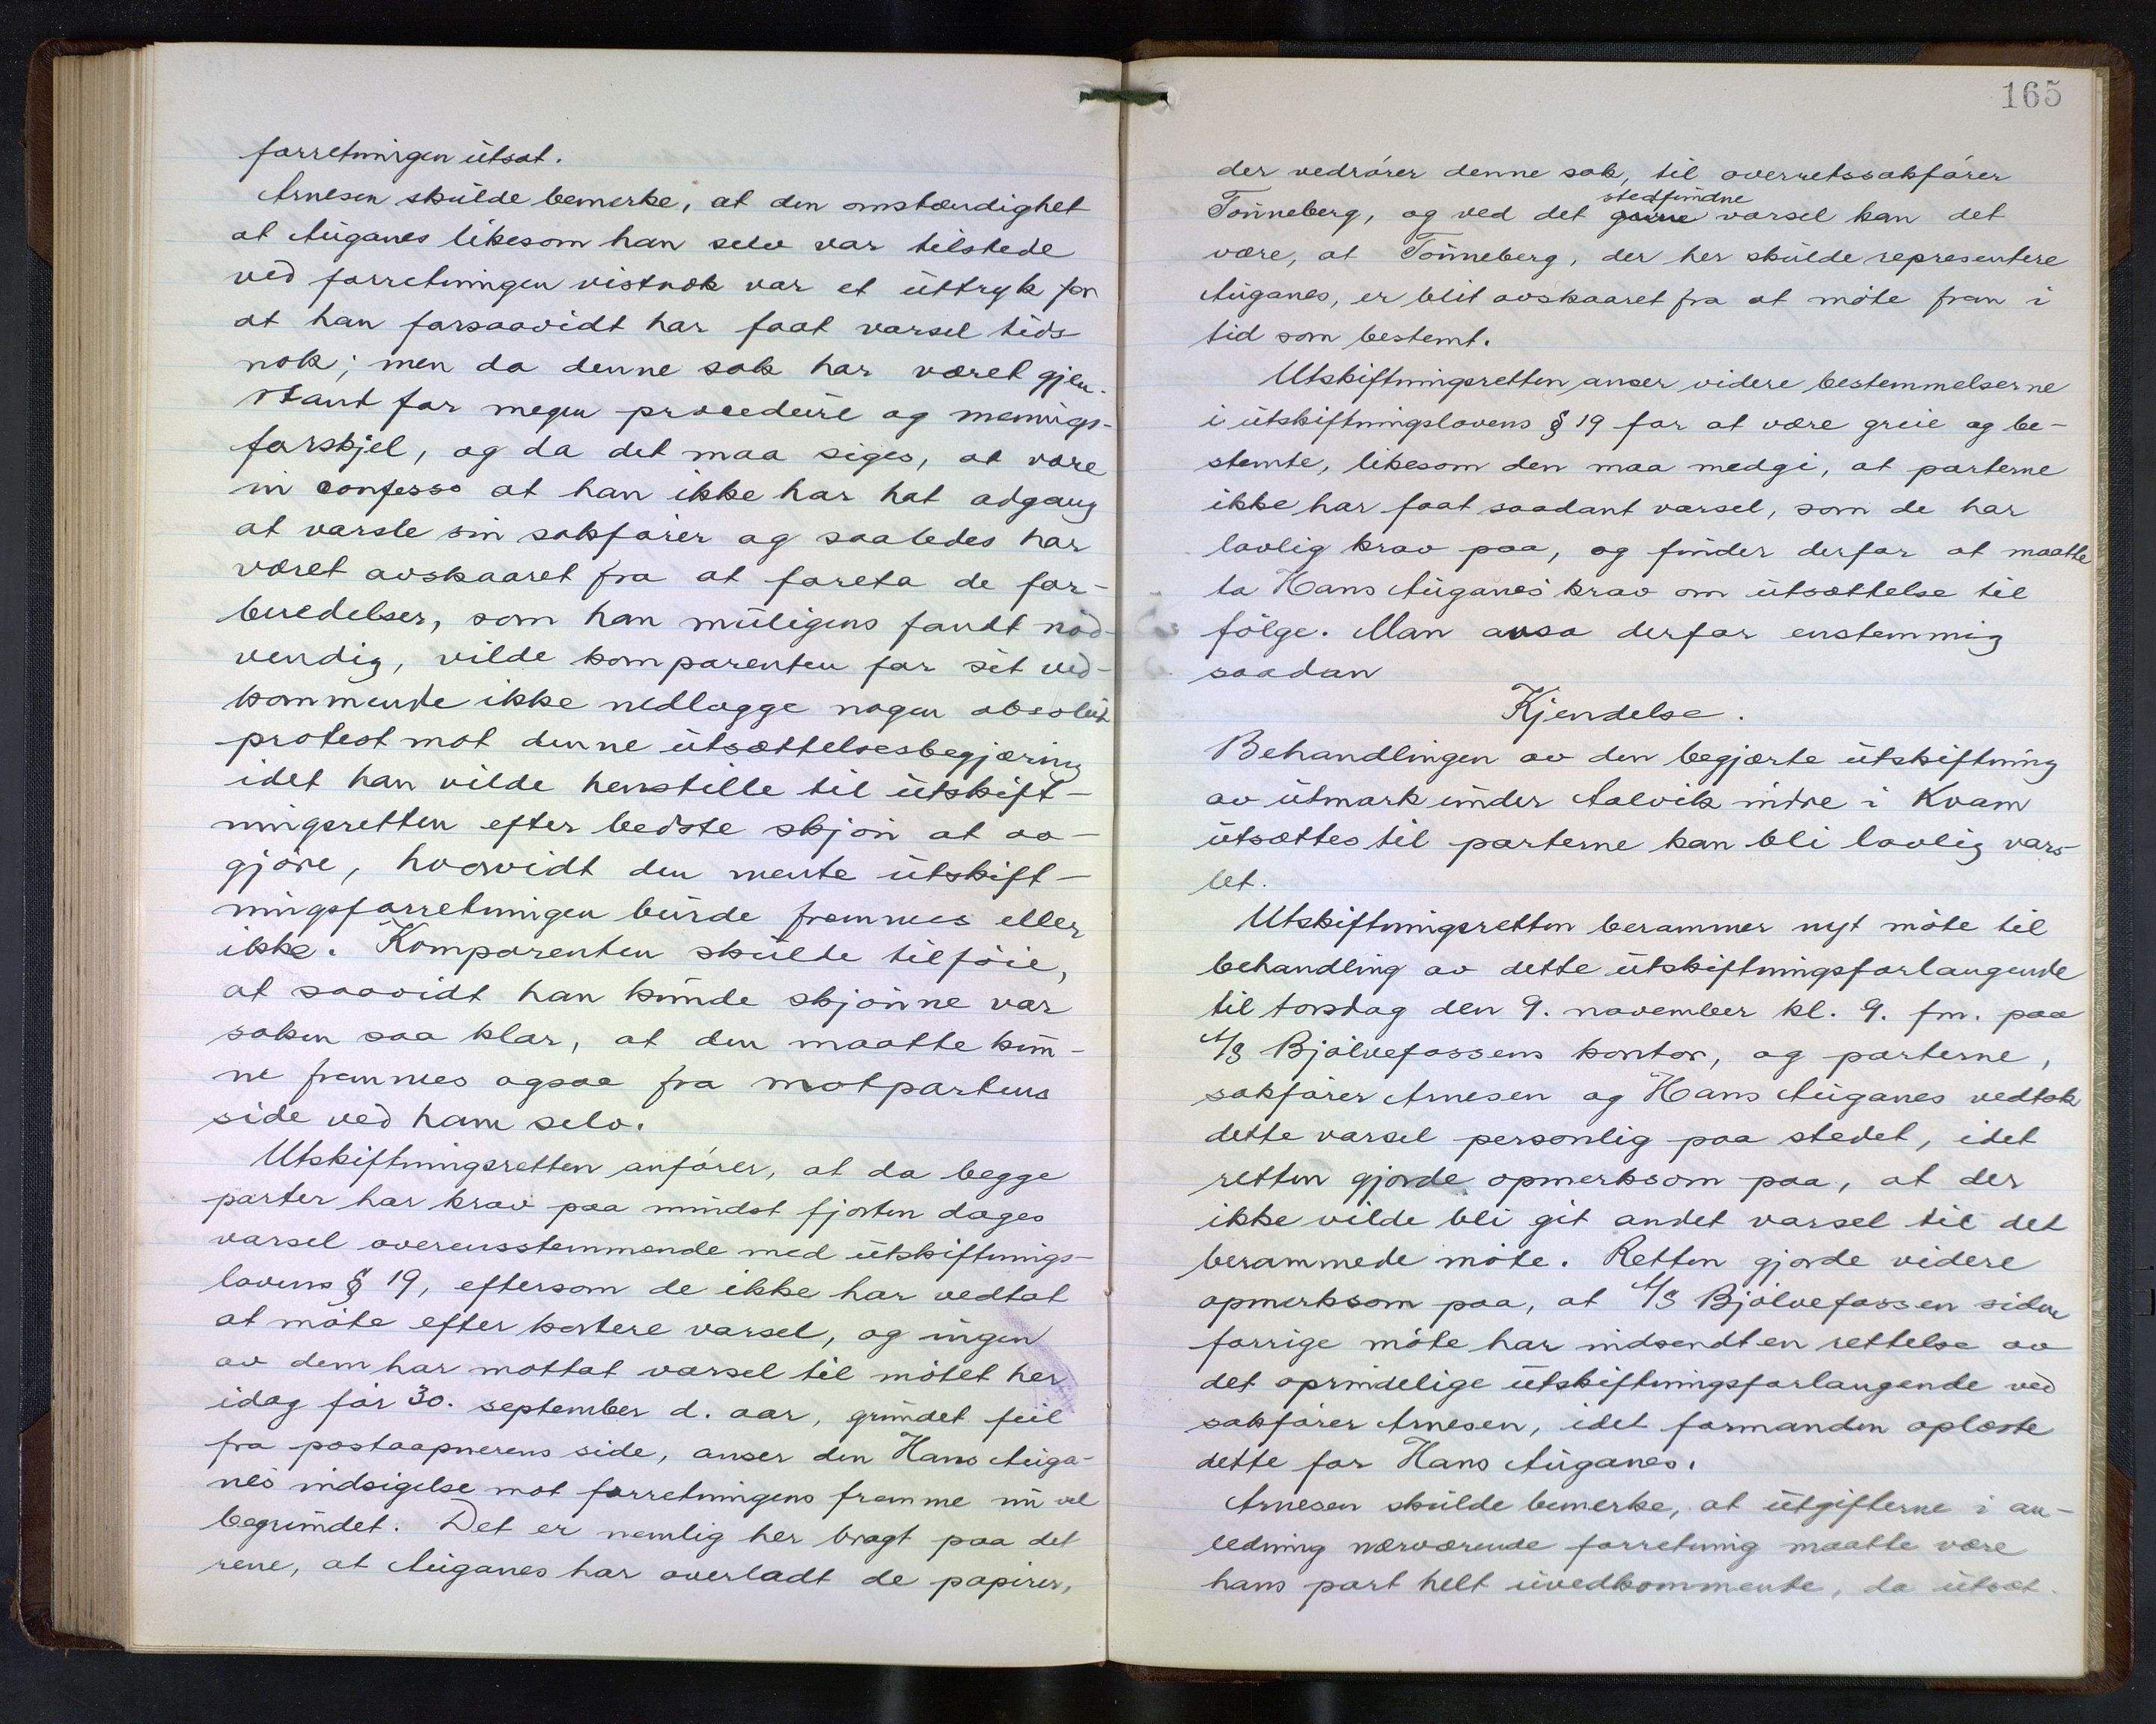 forretningen utsat.
Arnesen skulde bemerke, at den omstændighet
at Auganes likesom han selv var tilstede
ved forretningen vistnok var et uttryk for
at han forsaavidt har faat varsel tids
nok; men da denne sak har været gjen-
stand for megen procedure og menings-
forskjel, og da det maa siges, at være
in confesso at han ikke har hat adgang
at varsle sin sakfører og saaledes har
været avskaaret fra at foreta de for-
beredelser, som han muligens fandt nød-
vendig, vilde komparenten for sit ved-
kommende ikke nedlægge nogen absolut
protest mot denne utsættelsesbegjæring
idet han vilde henstille til utskift-
ningsretten efter bedste skjøn at av-
gjøre, hvorvidt den mente utskift-
ningsforretningen burde fremmes eller
ikke. Komparenten skulde tilføie,
at saavidt han kunde skjønne var
saken saa klar, at den maatte kun-
ne fremmes ogsaa fra motpartens
side ved ham selv.
Utskiftningsretten anfører, at da begge
parter har krav paa mindst fjorten dages
varsel overensstemmende med utskiftnings-
lovens § 19, eftersom de ikke har vedtat
at møte efter kortere varsel, og ingen
av dem har mottat varsel til møtet her
idag før 30. september d. aar, grundet feil
fra postaapnerens side, anser den Hans Auga-
nes indsigelse mot forretningens fremme nu vel
begrundet. Det er nemlig her bragt paa det
rene, at Auganes har overladt de papirer,
165
der vedrører denne sak, til overretssakfører
stedfundne
Tønneberg, og ved det givne varsel kan det
være, at Tønneberg, der her skulde representere
Auganes, er blit avskaaret fra at møte frem i
tid som bestemt.
Utskiftningsretten anser videre bestemmelserne
i utskiftningslovens § 19 for at være greie og be-
stemte, likesom den maa medgi, at parterne
ikke har faat saadant varsel, som de har
lovlig krav paa, og finder derfor at maatte
ta Hans Auganes' krav om utsættelse til
følge. Man avsa derfor enstemmig
saadan
Kjendelse.
Behandlingen av den begjærte utskiftning
av utmark under Aalvik indre i Kvam
utsættes til parterne kan bli lovlig vars-
let.
Utskiftningsretten berammer nyt møte til
behandling av dette utskiftningsforlangende
til torsdag den 9. november kl. 9. fm. paa
A/S Bjølvefossens kontor, og parterne,
sakfører Arnesen og Hans Auganes vedtok
dette varsel personlig paa stedet, idet
retten gjorde opmerksom paa, at der
ikke vilde bli git andet varsel til det
berammede møte. Retten gjorde videre
opmerksom paa, at A/S Bjølvefossen siden
forrige møte har indsendt en rettelse av
det oprindelige utskiftningsforlangende ved
sakfører Arnesen, idet formanden oplæste
dette for Hans Auganes.
Arnesen skulde bemerke, at utgifterne i an-
ledning nærværende forretning maatte være
hans part helt uvedkommende, da utsæt-